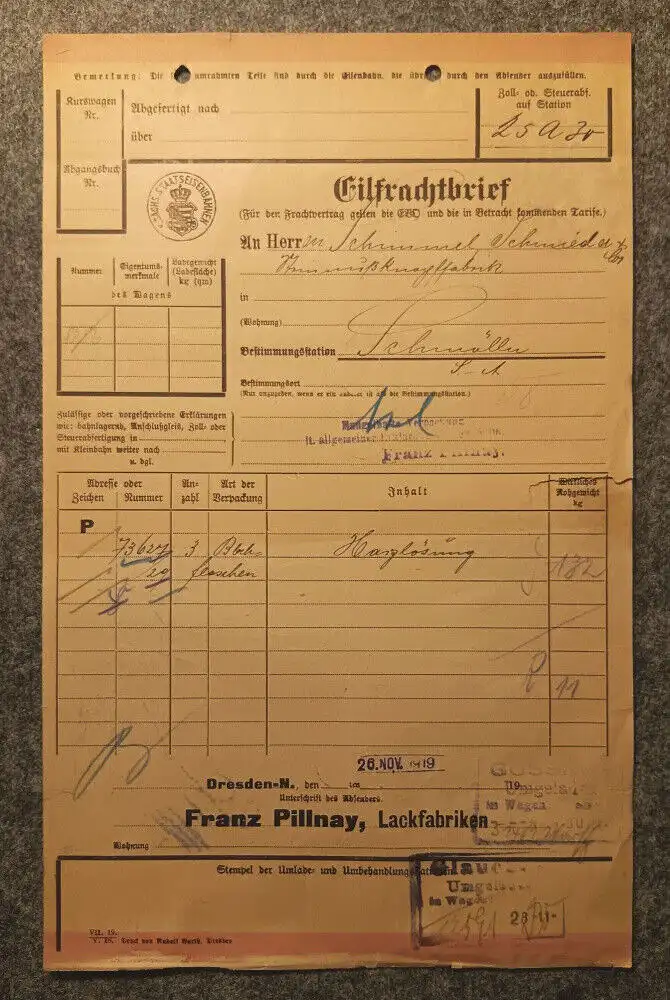 Bemerkung: Die umrahmten Teile sind durch die Eisenbahn, die übr durch den Absender auszufüllen.
Kurswagen Nr.
Abgefertigt nach
über
Zoll- od. Steuerabf. auf Station
25 A 30
Abgangsbuch Nr.
K. SÄCHS. STAATSEISENBAHNEN
Eilfrachtbrief
(Für den Frachtvertrag gelten die EVO und die in Betracht kommenden Tarife.)
An Herrn Schimmel, Schmied &
Steinnußknopffabrik
Nummer
Eigentums-merkmale
Ladegewicht (Ladefläche) kg (qm)
des Wagens
in
(Wohnung)
Bestimmungsstation Schmölln
S.-A.
Bestimmungsort
(Nur anzugeben, wenn er ein anderer ist als die Bestimmungsstation.)
Zulässige oder vorgeschriebene Erklärungen
wie: bahnlagernd, Anschlußgleis, Zoll- oder
Steuerabfertigung in
mit Kleinbahn weiter nach
u. dgl.
lt. allgemeiner
Franz Pillnay.
Adresse oder
Zeichen Nummer
An-zahl
Art der Verpackung
Inhalt
Wirkliches Rohgewicht kg
P
73627 3 Blech- Harzlösung 132
29 flaschen
P 11
26. NOV. 1919
Dresden-N., den
Unterschrift des Absenders.
Franz Pillnay, Lackfabriken
Wohnung
Umgelad
im Wagen
Stempel der Umlade- und Umbehandlungsstationen.
Glauc
Umgelad
im Wagen
28 11
VII. 19.
V. 28. Druck von Rudolf Barth, Dresden